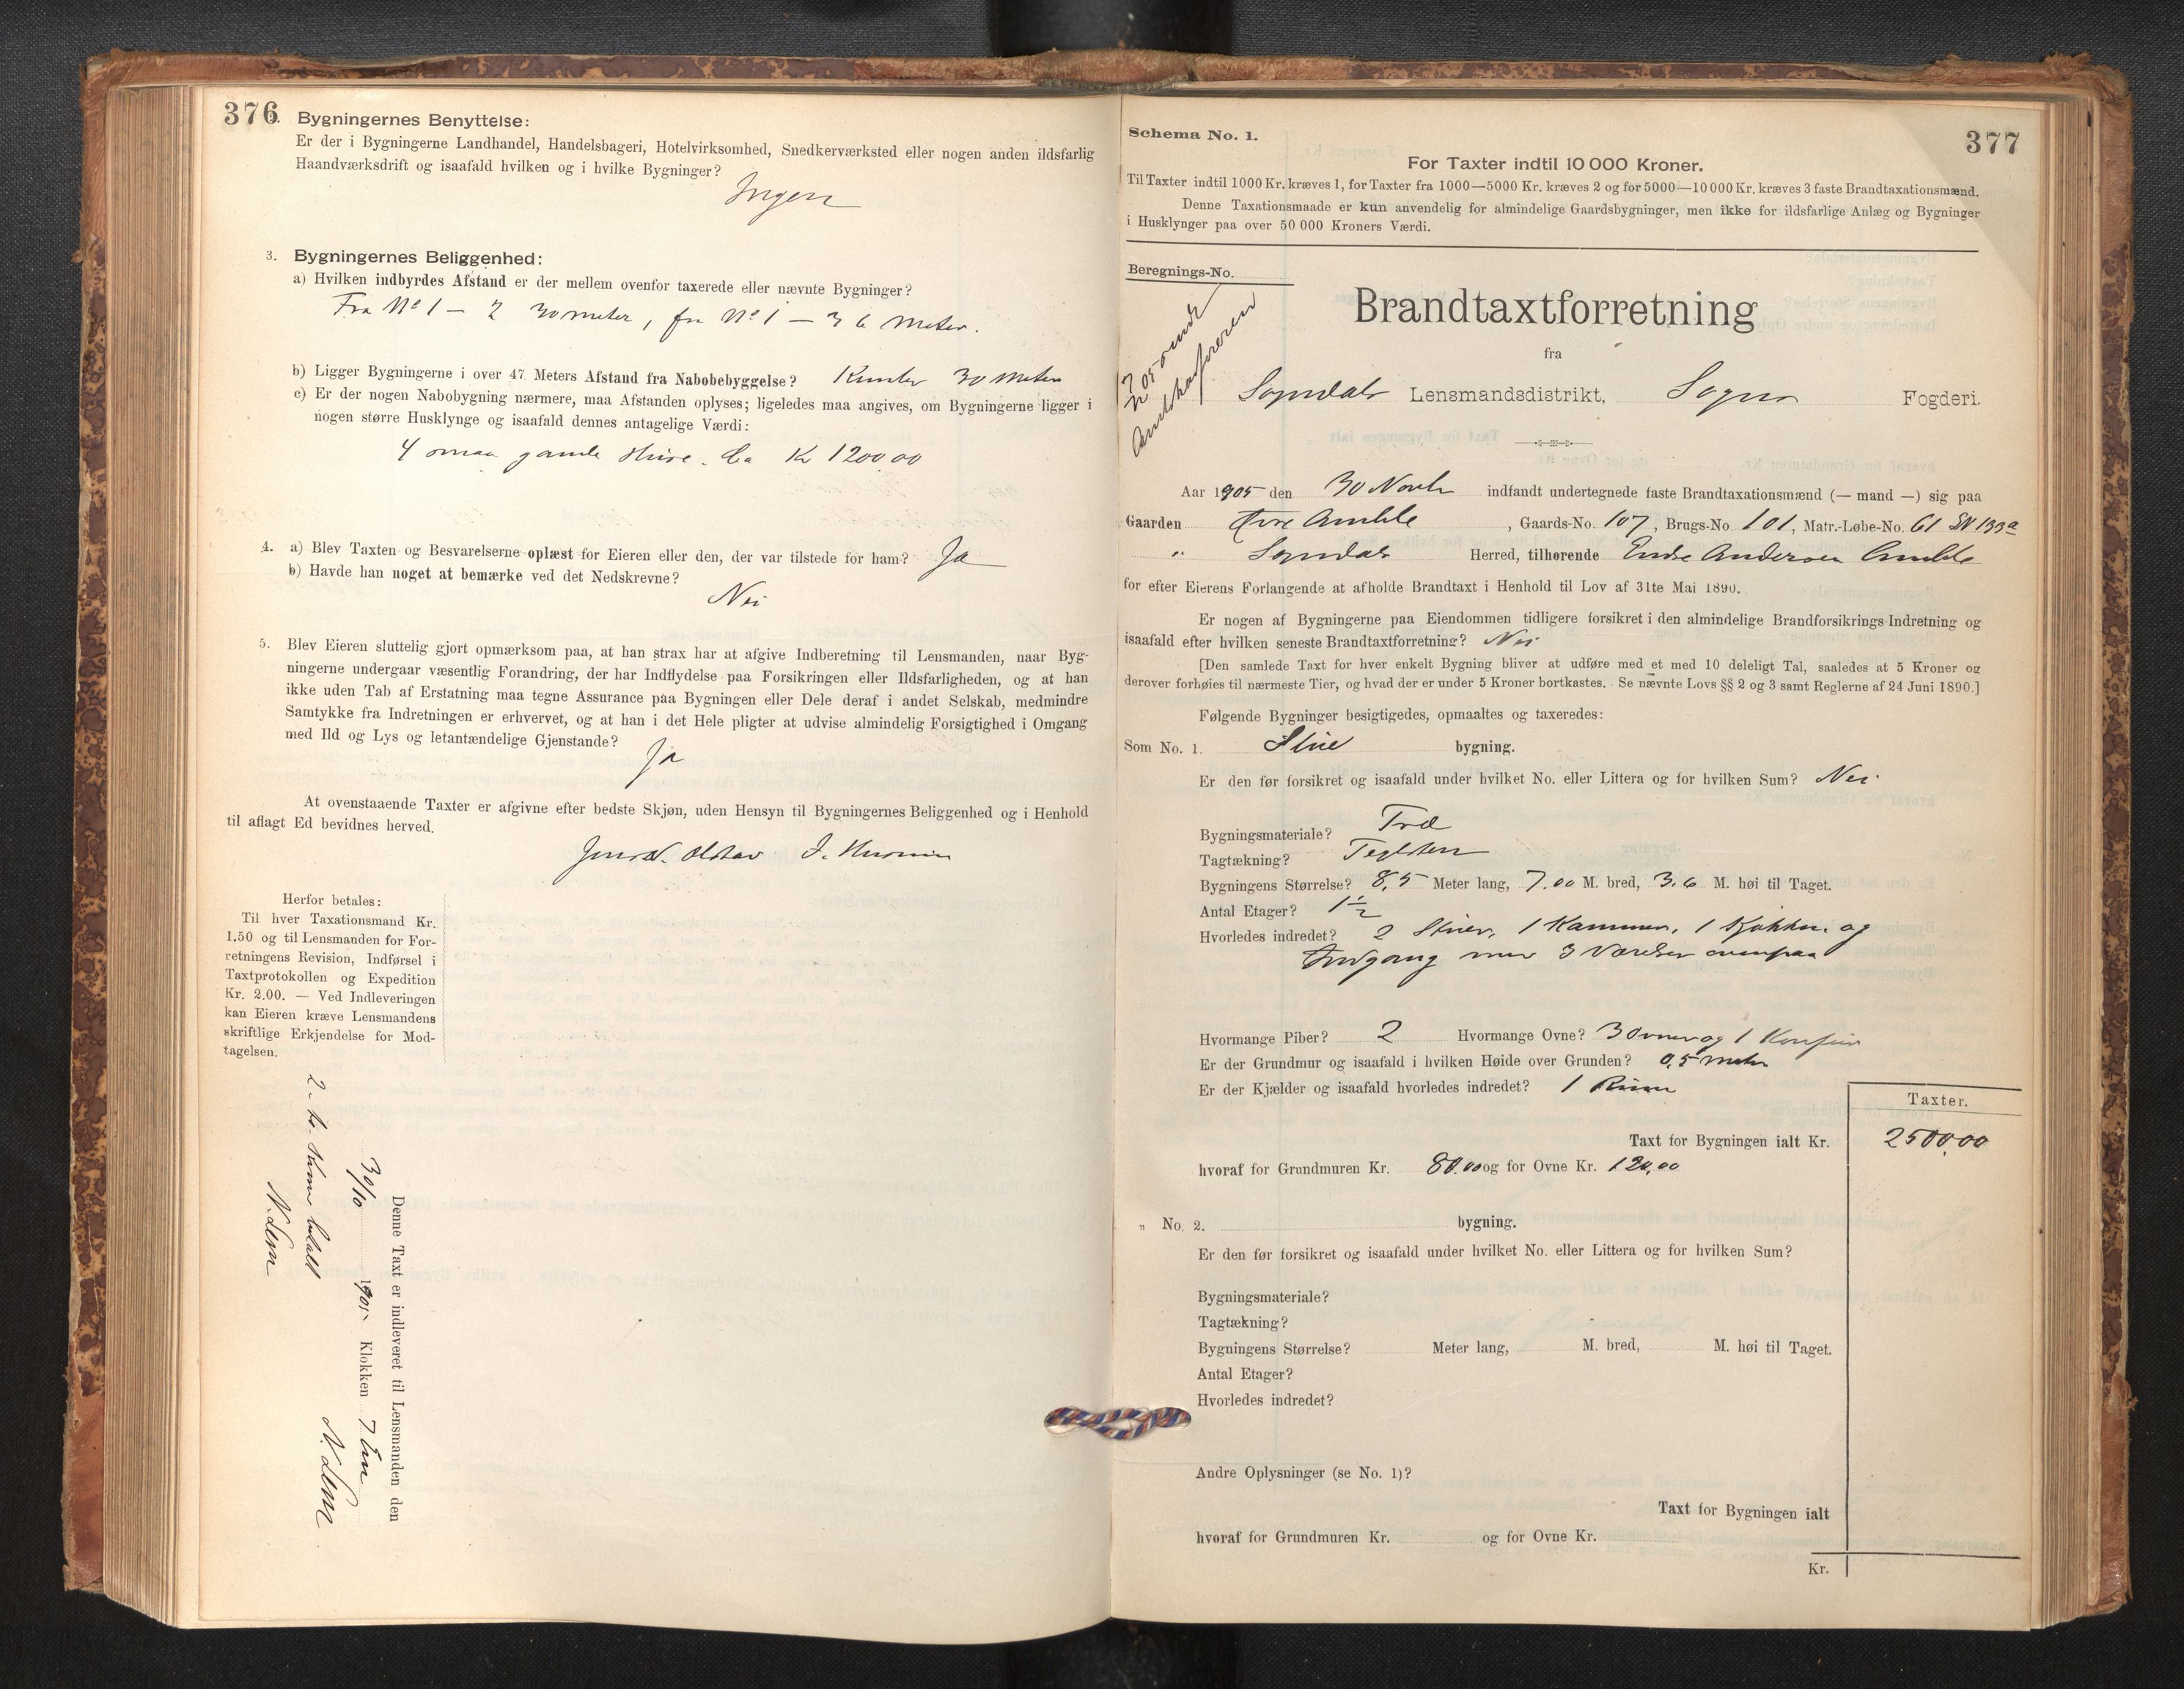 376
2. Bygningernes Benyttelse:
Er der i Bygningerne Landhandel, Handelsbageri, Hotelvirksomhed, Snedkerværksted eller nogen anden ildsfarlig
Haandværksdrift og isaafald hvilken og i hvilke Bygninger?
Ingen
3. Bygningernes Beliggenhed:
a) Hvilken indbyrdes Afstand er der mellem ovenfor taxerede eller nævnte Bygninger?
Fra No 1 — 2 30 meter, fra No 1 — 3 6 meter.
b) Ligger Bygningerne i over 47 Meters Afstand fra Nabobebyggelse? 30 Meter
c) Er der nogen Nabobygning nærmere, maa Afstanden oplyses; ligeledes maa angives, om Bygningerne ligger i
nogen større Husklynge og isaafald dennes antagelige Værdi:
4 smaa gamle Huse. Ca Kr 1200,00
4. a) Blev Taxten og Besvarelserne oplæst for Eieren eller den, der var tilstede for ham? Ja
b) Havde han noget at bemærke ved det Nedskrevne?
Nei
5. Blev Eieren sluttelig gjort opmærksom paa, at han strax har at afgive Indberetning til Lensmanden, naar Byg-
ningerne undergaar væsentlig Forandring, der har Indflydelse paa Forsikringen eller Ildsfarligheden, og at han
ikke uden Tab af Erstatning maa tegne Assurance paa Bygningen eller Dele deraf i andet Selskab, medmindre
Samtykke fra Indretningen er erhvervet, og at han i det Hele pligter at udvise almindelig Forsigtighed i Omgang
med Ild og Lys og letantændelige Gjenstande?
Ja
At ovenstaaende Taxter er afgivne efter bedste Skjøn, uden Hensyn til Bygningernes Beliggenhed og i Henhold
til aflagt Ed bevidnes herved.
Herfor betales:
Til hver Taxationsmand Kr.
1.50 og til Lensmanden for For-
retningens Revision, Indførsel i
Taxtprotokollen og Expedition
Kr. 2.00. — Ved Indleveringen
kan Eieren kræve Lensmandens
skriftlige Erkjendelse for Mod-
tagelsen.
Denne Taxt er indleveret til Lensmanden den
30/10 1905 Klokken 7 Em
377
Schema No. 1.
For Taxter indtil 10 000 Kroner.
Til Taxter indtil 1000 Kr. kræves 1, for Taxter fra 1000—5000 Kr. kræves 2 og for 5000—10 000 Kr. kræves 3 faste Brandtaxationsmænd.
Denne Taxationsmaade er kun anvendelig for almindelige Gaardsbygninger, men ikke for ildsfarlige Anlæg og Bygninger
i Husklynger paa over 50 000 Kroners Værdi.
Beregnings-No.
Brandtaxtforretning
fra
Sogndals Lensmandsdistrikt, Sogns Fogderi.
Aar 1905 den 30 Novbr indfandt undertegnede faste Brandtaxationsmænd (— mand —) sig paa
Gaarden Øvre Amble, Gaards-No. 107, Brugs-No. 101, Matr.-Løbe-No. 61 SN 133a
" Sogndals Herred, tilhørende Endre Andersen Amble
for efter Eierens Forlangende at afholde Brandtaxt i Henhold til Lov af 31te Mai 1890.
Er nogen af Bygningerne paa Eiendommen tidligere forsikret i den almindelige Brandforsikrings-Indretning og
isaafald efter hvilken seneste Brandtaxtforretning? Nei
[Den samlede Taxt for hver enkelt Bygning bliver at udføre med et med 10 deleligt Tal, saaledes at 5 Kroner og
derover forhøies til nærmeste Tier, og hvad der er under 5 Kroner bortkastes. Se nævnte Lovs §§ 2 og 3 samt Reglerne af 24 Juni 1890.]
Følgende Bygninger besigtigedes, opmaaltes og taxeredes:
Som No. 1. Stue bygning.
Er den før forsikret og isaafald under hvilket No. eller Littera og for hvilken Sum? Nei
Bygningsmateriale? Træ
Tagtækning? Teglsten
Bygningens Størrelse? 8,5 Meter lang, 7.00 M. bred, 3.6 M. høi til Taget.
Antal Etager? 1 1/2
Hvorledes indredet? 2 Stuer, 1 Kammer, 1 Kjøkken og
Indgang med 3 Værelser ovenpaa
Hvormange Piber? 2 Hvormange Ovne? 3 Ovner og 1 Komfur
Er der Grundmur og isaafald i hvilken Høide over Grunden? 0,5 meter
Er der Kjælder og isaafald hvorledes indredet? 1 Rum
Taxter.
Taxt for Bygningen ialt Kr. 2500,00
hvoraf for Grundmuren Kr. 80.00 og for Ovne Kr. 120,00
" No. 2. bygning.
Er den før forsikret og isaafald under hvilket No. eller Littera og for hvilken Sum?
Bygningsmateriale?
Tagtækning?
Bygningens Størrelse? Meter lang, M. bred, M. høi til Taget.
Antal Etager?
Hvorledes indredet?
Andre Oplysninger (se No. 1)?
Taxt for Bygningen ialt
hvoraf for Grundmuren Kr. og for Ovne Kr.
Kr.